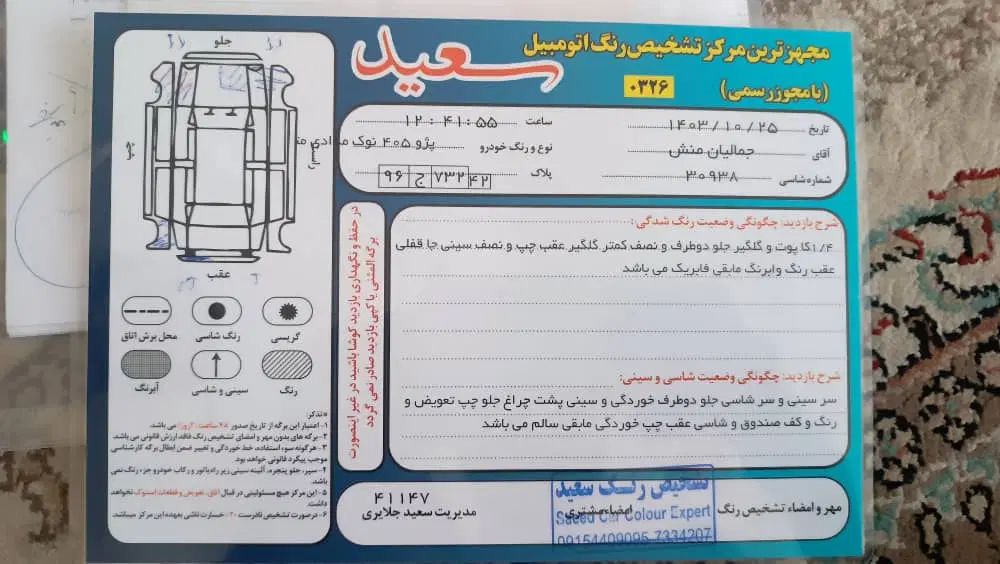 مجهزترین مرکز تشخیص رنگ اتومبیل
سعید
(با مجوز رسمی)
۰۳۲۶
تاریخ ۱۴۰۳/۱۰/۲۵
ساعت ۱۲:۴۱:۵۵
آقای جمالیان منش
نوع و رنگ خودرو پژو ۴۰۵ نوک مدادی
شماره شاسی ۳۰۹۳۸
پلاک ۴۲ ۷۳۲ ج ۹۶
شرح بازدید: چگونگی وضعیت رنگ شدگی:
۱/۴کاپوت و گلگیر جلو دوطرف و نصف کمتر گلگیر عقب چپ و نصف سینی جا قفلی
عقب رنگ وابرنگ مابقی فابریک می باشد
شرح بازدید: چگونگی وضعیت شاسی و سینی:
سر سینی و سر شاسی جلو دوطرف خوردگی و سینی پشت چراغ جلو چپ تعویض و
رنگ و کف صندوق و شاسی عقب چپ خوردگی مابقی سالم می باشد
در حفظ و نگهداری بازدید کوشا باشید در غیر اینصورت
برگه المثنی یا کپی بازدید صادر نمی گردد
جلو
چپ
راست
عقب
گریسی
رنگ شاسی
محل برش اتاق
رنگ
سینی و شاسی
آبرنگ
تذکر:
۱- اعتبار این برگه از تاریخ صدور ۴۸ ساعت (۲روز) می باشد.
۲- برگه های بدون مهر و امضای تشخیص رنگ فاقد ارزش قانونی می باشد.
۳- هرگونه سوء استفاده، خط خوردگی و تغییر ضمن ابطال برگه کارشناسی
موجب پیگرد قانونی خواهد بود.
۴- سپر، جلو پنجره، آئینه سینی زیر رادیاتور و رکاب خودرو جزء رنگ نمی
باشد.
۵- این مرکز هیچ مسئولیتی در قبال اتاق تعویض و قطعات استوک نخواهد
داشت.
۶- در صورت تشخیص نادرست ۲۰٪ خسارت ناشی بعهده این مرکز میباشد.
مهر و امضاء تشخیص رنگ
امضاء مشتری
تشخیص رنگ سعید
Saeed Car Colour Expert
09154409095-7334207
۴۱۱۴۷
مدیریت سعید جلایری